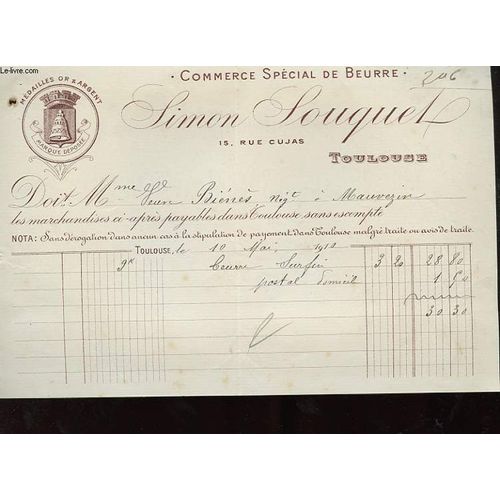 Le-livre.com
COMMERCE SPÉCIAL DE BEURRE
206
MÉDAILLES OR & ARGENT
MARQUE DÉPOSÉE
Simon Souquet
15, RUE CUJAS
TOULOUSE
Doit Mme Vve Jean Biénès, Négt à Mauvezin
les marchandises ci-après payables dans Toulouse sans escompte
NOTA: Sans dérogation dans aucun cas à la stipulation de payement dans Toulouse malgré traite ou avis de traite.
TOULOUSE, le 10 Mai 1910
9K Beurre Surfin 3 20 28.80
postal domicil 1 50
30.30